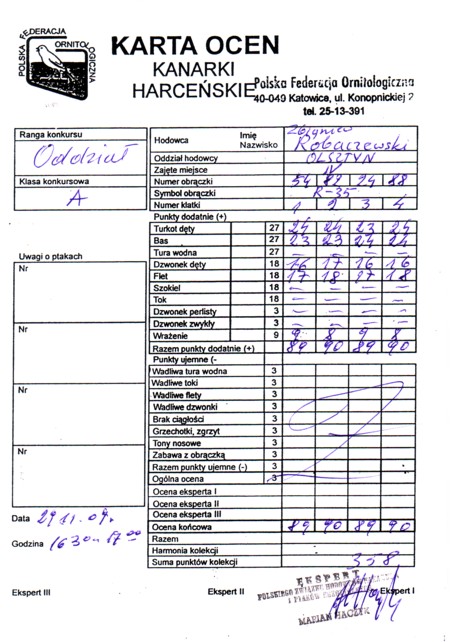 POLSKA FEDERACJA ORNITOLOGICZNA
KARTA OCEN
KANARKI
HARCEŃSKIE
Polska Federacja Ornitologiczna
40-049 Katowice, ul. Konopnickiej 2
tel. 25-13-391
Ranga konkursu
Oddział
Klasa konkursowa
A
Hodowca Imię Nazwisko Zbigniew Robaczewski
Oddział hodowcy OLSZTYN
Zajęte miejsce IV
Numer obrączki 54 87 24 88
Symbol obrączki R-35
Numer klatki 1 2 3 4
Punkty dodatnie (+)
Turkot dęty 27 24 24 23 24
Bas 27 23 23 24 24
Tura wodna 27 — — — —
Dzwonek dęty 18 16 17 16 16
Flet 18 17 18 17 18
Szokiel 18 — — — —
Tok 18 — — — —
Dzwonek perlisty 3 — — — —
Dzwonek zwykły 3 — — — —
Wrażenie 9 9 8 9 8
Razem punkty dodatnie (+) 89 90 89 90
Punkty ujemne (-
Wadliwa tura wodna 3
Wadliwe toki 3
Wadliwe flety 3
Wadliwe dzwonki 3
Brak ciągłości 3
Grzechotki, zgrzyt 3
Tony nosowe 3
Zabawa z obrączką 3
Razem punkty ujemne (-) 3
Ogólna ocena 3
Ocena eksperta I
Ocena eksperta II
Ocena eksperta III
Ocena końcowa 89 90 89 90
Razem
Harmonia kolekcji
Suma punktów kolekcji 358
Uwagi o ptakach
Nr
Nr
Nr
Nr
Data 29.11.09r.
Godzina 16 30 - 17 00
Ekspert III
Ekspert II
Ekspert I
EKSPERT
POLSKIEGO ZWIĄZKU
MARIAN HACZYK